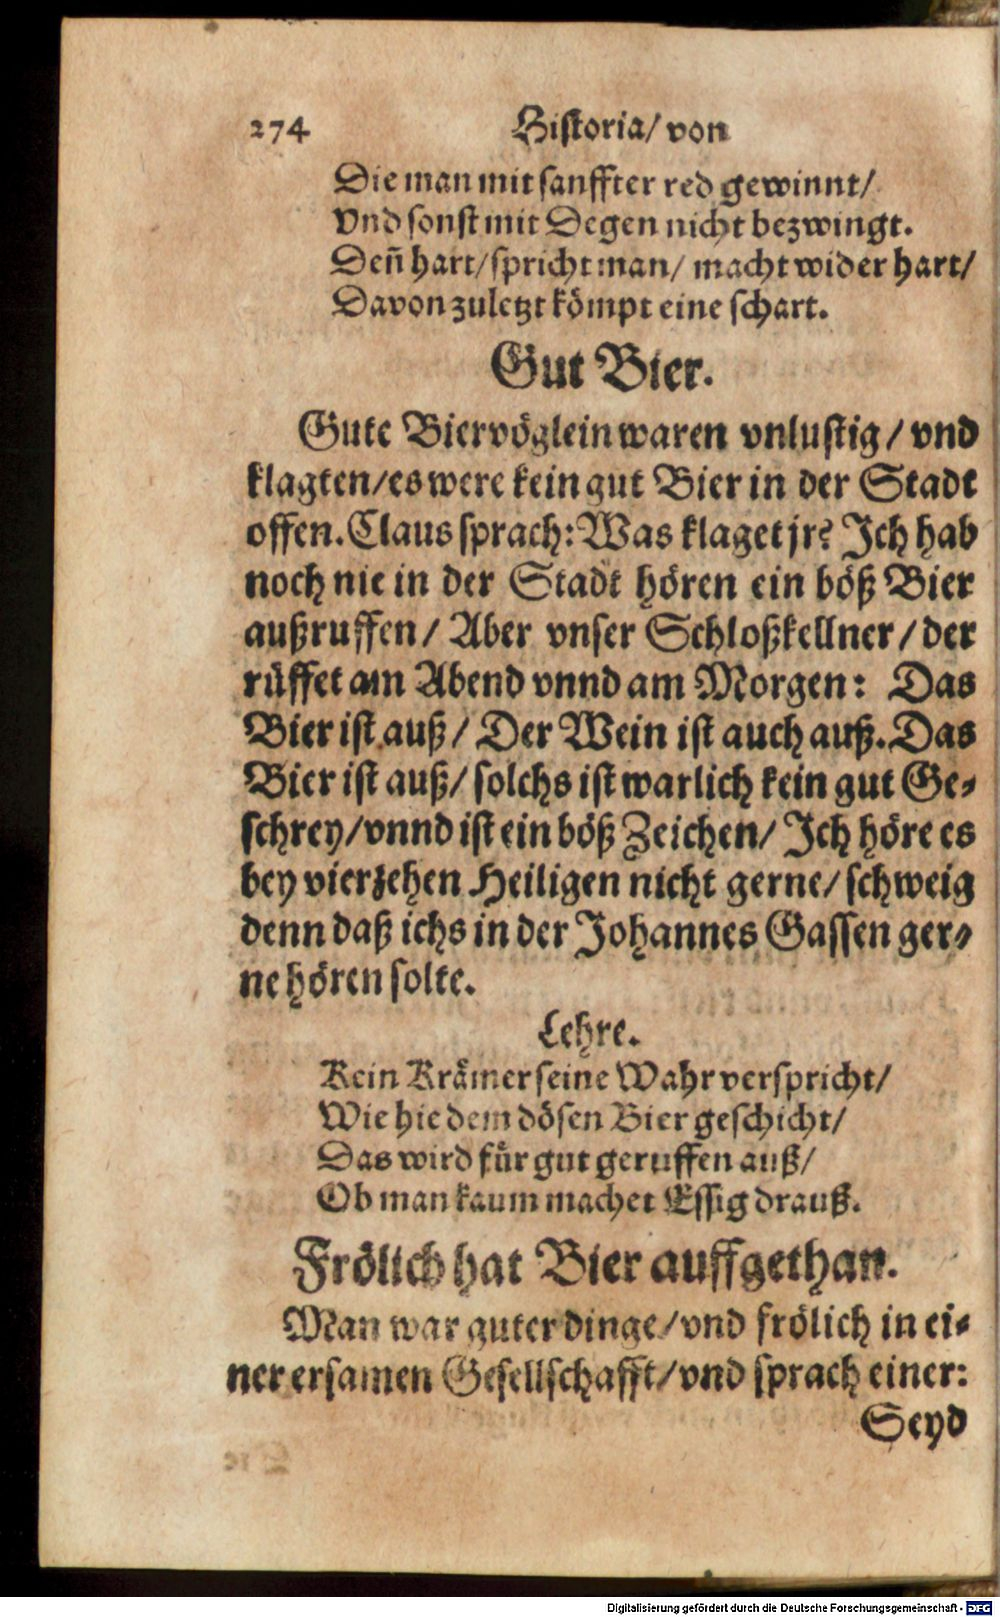 274 Historia/ von
Die man mit sanffter red gewinnt/
Vnd sonst mit Degen nicht bezwingt.
Deñ hart/ spricht man/ macht wider hart/
Davon zuletzt kömpt eine schart.
Gut Bier.
Gute Biervöglein waren vnlustig/ vnd
klagten/ es were kein gut Bier in der Stadt
offen. Claus sprach: Was klaget jr? Ich hab
noch nie in der Stadt hören ein böß Bier
außruffen/ Aber vnser Schloßkellner/ der
rüffet am Abend vnnd am Morgen: Das
Bier ist auß/ Der Wein ist auch auß. Das
Bier ist auß/ solchs ist warlich kein gut Ge-
schrey/ vnnd ist ein böß Zeichen/ Ich höre es
bey vierzehen Heiligen nicht gerne/ schweig
denn daß ichs in der Johannes Gassen ger-
ne hören solte.
Lehre.
Kein Krämer seine Wahr verspricht/
Wie hie dem dösen Bier geschicht/
Das wird für gut geruffen auß/
Ob man kaum machet Essig drauß.
Frölich hat Bier auffgethan.
Man war guter dinge/ vnd frölich in ei-
ner ersamen Gesellschafft/ vnd sprach einer:
Seyd
Digitalisierung gefördert durch die Deutsche Forschungsgemeinschaft - DFG